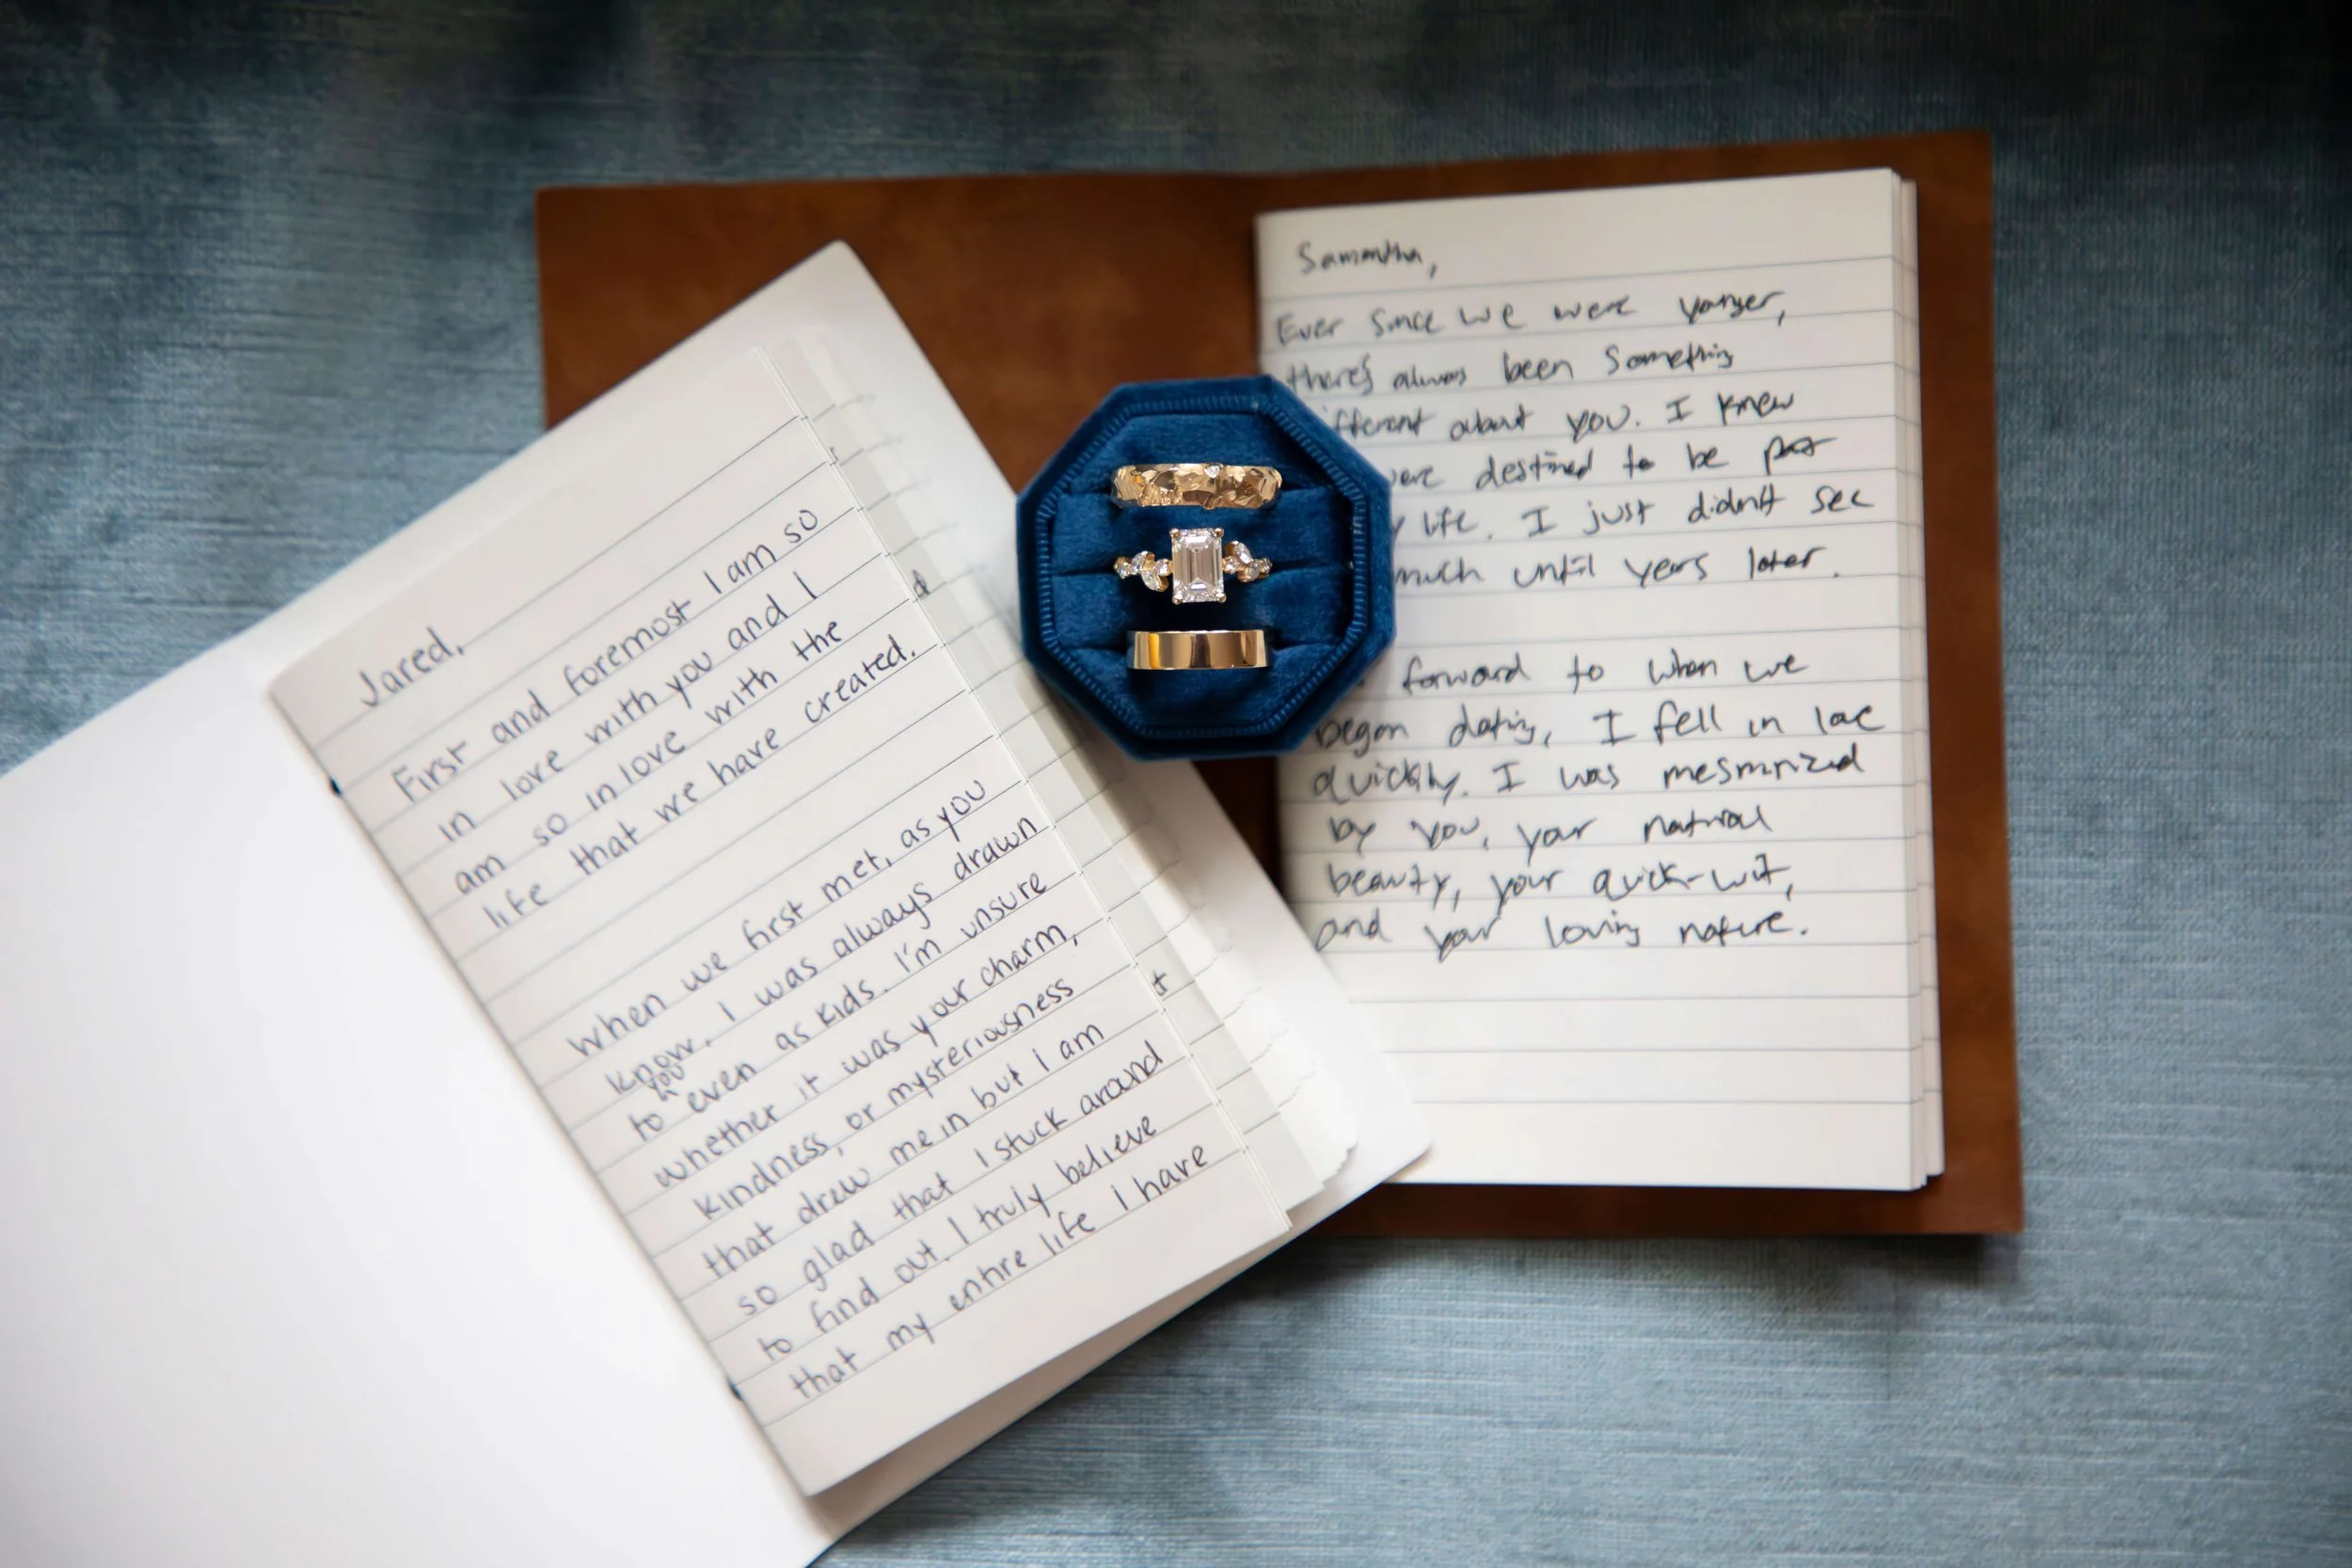 Jared,
First and foremost I am so
in love with you and I
am so in love with the
life that we have created.
When we first met, as you
know, I was always drawn
you
to ^ even as kids. I'm unsure
whether it was your charm,
kindness, or mysteriousness
that drew me in but i am
so glad that I stuck around
to find out. I truly believe
that my entire life I have
Samantha,
Ever since we were younger,
there's always been something
ifferent about you. I knew
were destined to be part
y life. I just didn't see
much until years later.
forward to when we
began dating, I fell in love
quickly. I was mesmrized
by you, your natural
beauty, your quick-wit,
and your loving nature.